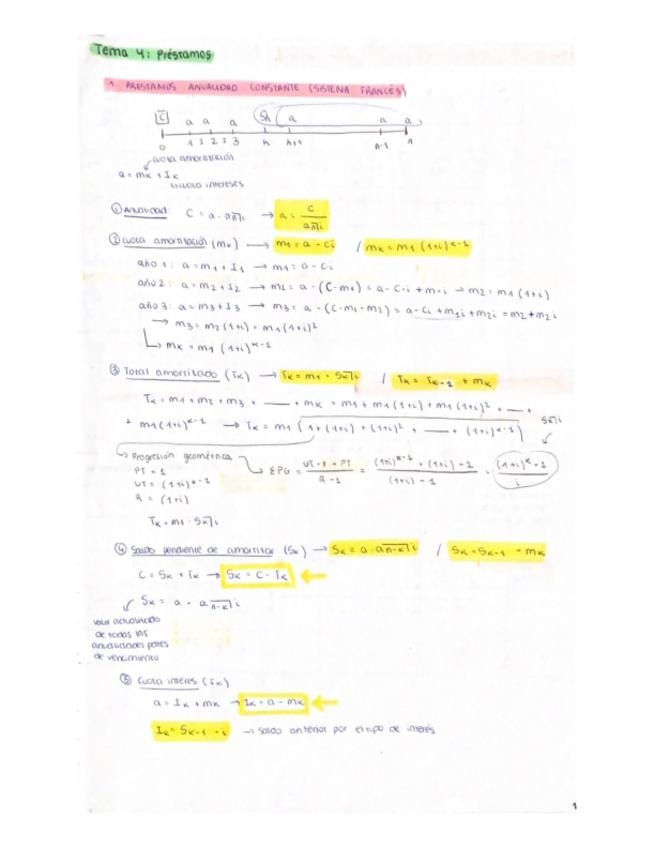 Tema 4: Préstamos
1. PRESTAMOS ANUALIDAD CONSTANTE (SISTEMA FRANCÉS)
C a a a Sh a a a
0 1 2 3 h h+1 n-1 n
cuota amortización
a = mk + Ik
cuota intereses
① Anualidad: C = a · an̅|i → a = C / an̅|i
② Cuota amortización (mk) → m1 = a - Ci / mk = m1 (1+i)^k-1
año 1: a = m1 + I1 → m1 = a - Ci
año 2: a = m2 + I2 → m2 = a - (C-m1) = a - C·i + m1·i → m2 = m1 (1+i)
año 3: a = m3 + I3 → m3 = a - (C-m1-m2) = a - Ci + m1i + m2i = m2 + m2i
→ m3 = m2 (1+i) = m1 (1+i)²
→ mk = m1 (1+i)^k-1
③ Total amortizado (Tk) → Tk = m1 · Sk̅|i / Tk = Tk-1 + mk
Tk = m1 + m2 + m3 + — + mk = m1 + m1 (1+i) + m1 (1+i)² + — +
+ m1 (1+i)^k-1 → Tk = m1 (1 + (1+i) + (1+i)² + — + (1+i)^k-1) Sk̅|i
Progresión geométrica → ΣPG = (UT · R - PT) / (R - 1) = ((1+i)^k-1 · (1+i) - 1) / ((1+i) - 1) = ((1+i)^k - 1) / i
PT = 1
UT = (1+i)^k-1
R = (1+i)
Tk = m1 · Sk̅|i
④ Saldo pendiente de amortizar (Sk) → Sk = a · an-k̅|i / Sk = Sk-1 - mk
C = Sk + Tk → Sk = C - Tk ←
Sk = a · an-k̅|i
valor actualizado
de todas las
anualidades ptes
de vencimiento
⑤ Cuota interes (Ik)
a = Ik + mk → Ik = a - mk ←
Ik = Sk-1 · i → Saldo anterior por el tipo de interés
1